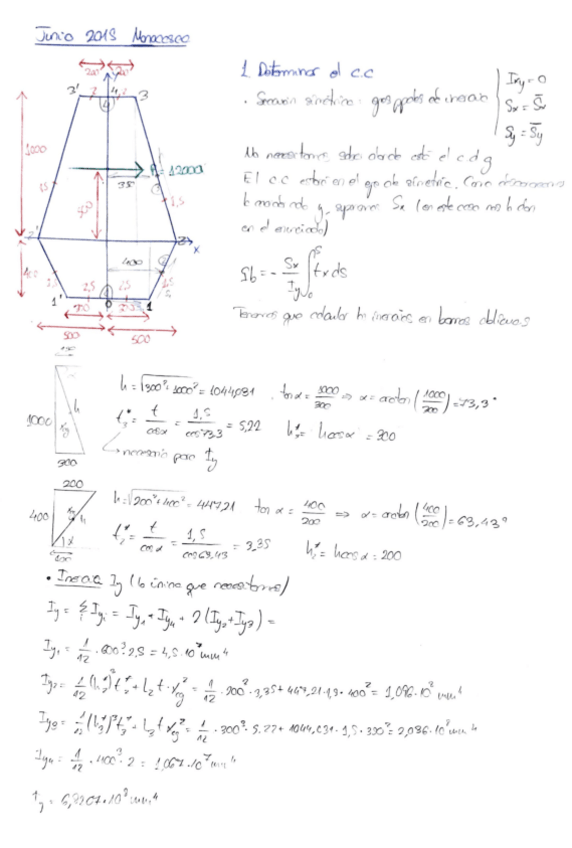 Junio 2013 Monocasco
200 200
3' 2 4 2 3
1000
1,5
35
P= 12000
1,5
2' 3 x
400
400
2,5 2,5 2,5
1' 0 1
300 300
500 500
1. Determinar el c.c
• Sección simétrica:
Ixy = 0
Sx = S̄x
Sy = S̄y
No necesitamos saber donde está el c d g
El c.c estará en el eje de simetría. Como desconocemos
la mitad de y, Sx (en este caso nos lo dan
en el enunciado)
Sb = - Sx/Iy ∫₀ˢ t x ds
Tenemos que calcular las inercias en barras oblicuas
1000 h
300
h = √300²+1000² = 1044,031 . tan α = 1000/300 ⇒ α = arctan (1000/300) = 73,3°
t* = t/cosα = 1,5/cos73.3 = 5,22 h* = h cosα = 300
→ necesario para Iy
200
400 h
h = √200²+400² = 447,21 tan α = 400/200 ⇒ α = arctan (400/200) = 63,43°
t* = t/cosα = 1,5/cos63,43 = 3,35 h* = h cosα = 200
• Inercia Iy (la única que necesitamos)
Iy = Σ Iyi = Iy1 + Iy4 + 2 (Iy2 + Iy3) =
Iy1 = 1/12 · 600³ · 2,5 = 4,5·10⁷ mm⁴
Iy2 = 1/12 (h2*)³ t2* + L2 t · xcg² = 1/12 · 200³ · 3,35 + 447,21 · 1,5 · 400² = 1,096·10⁸ mm⁴
Iy3 = 1/12 (h3*)³ t3* + L3 t xcg² = 1/12 · 300³ · 5.22 + 1044,031 · 1,5 · 350² = 2,036·10⁸ mm⁴
Iy4 = 1/12 · 400³ · 2 = 1,067·10⁷ mm⁴